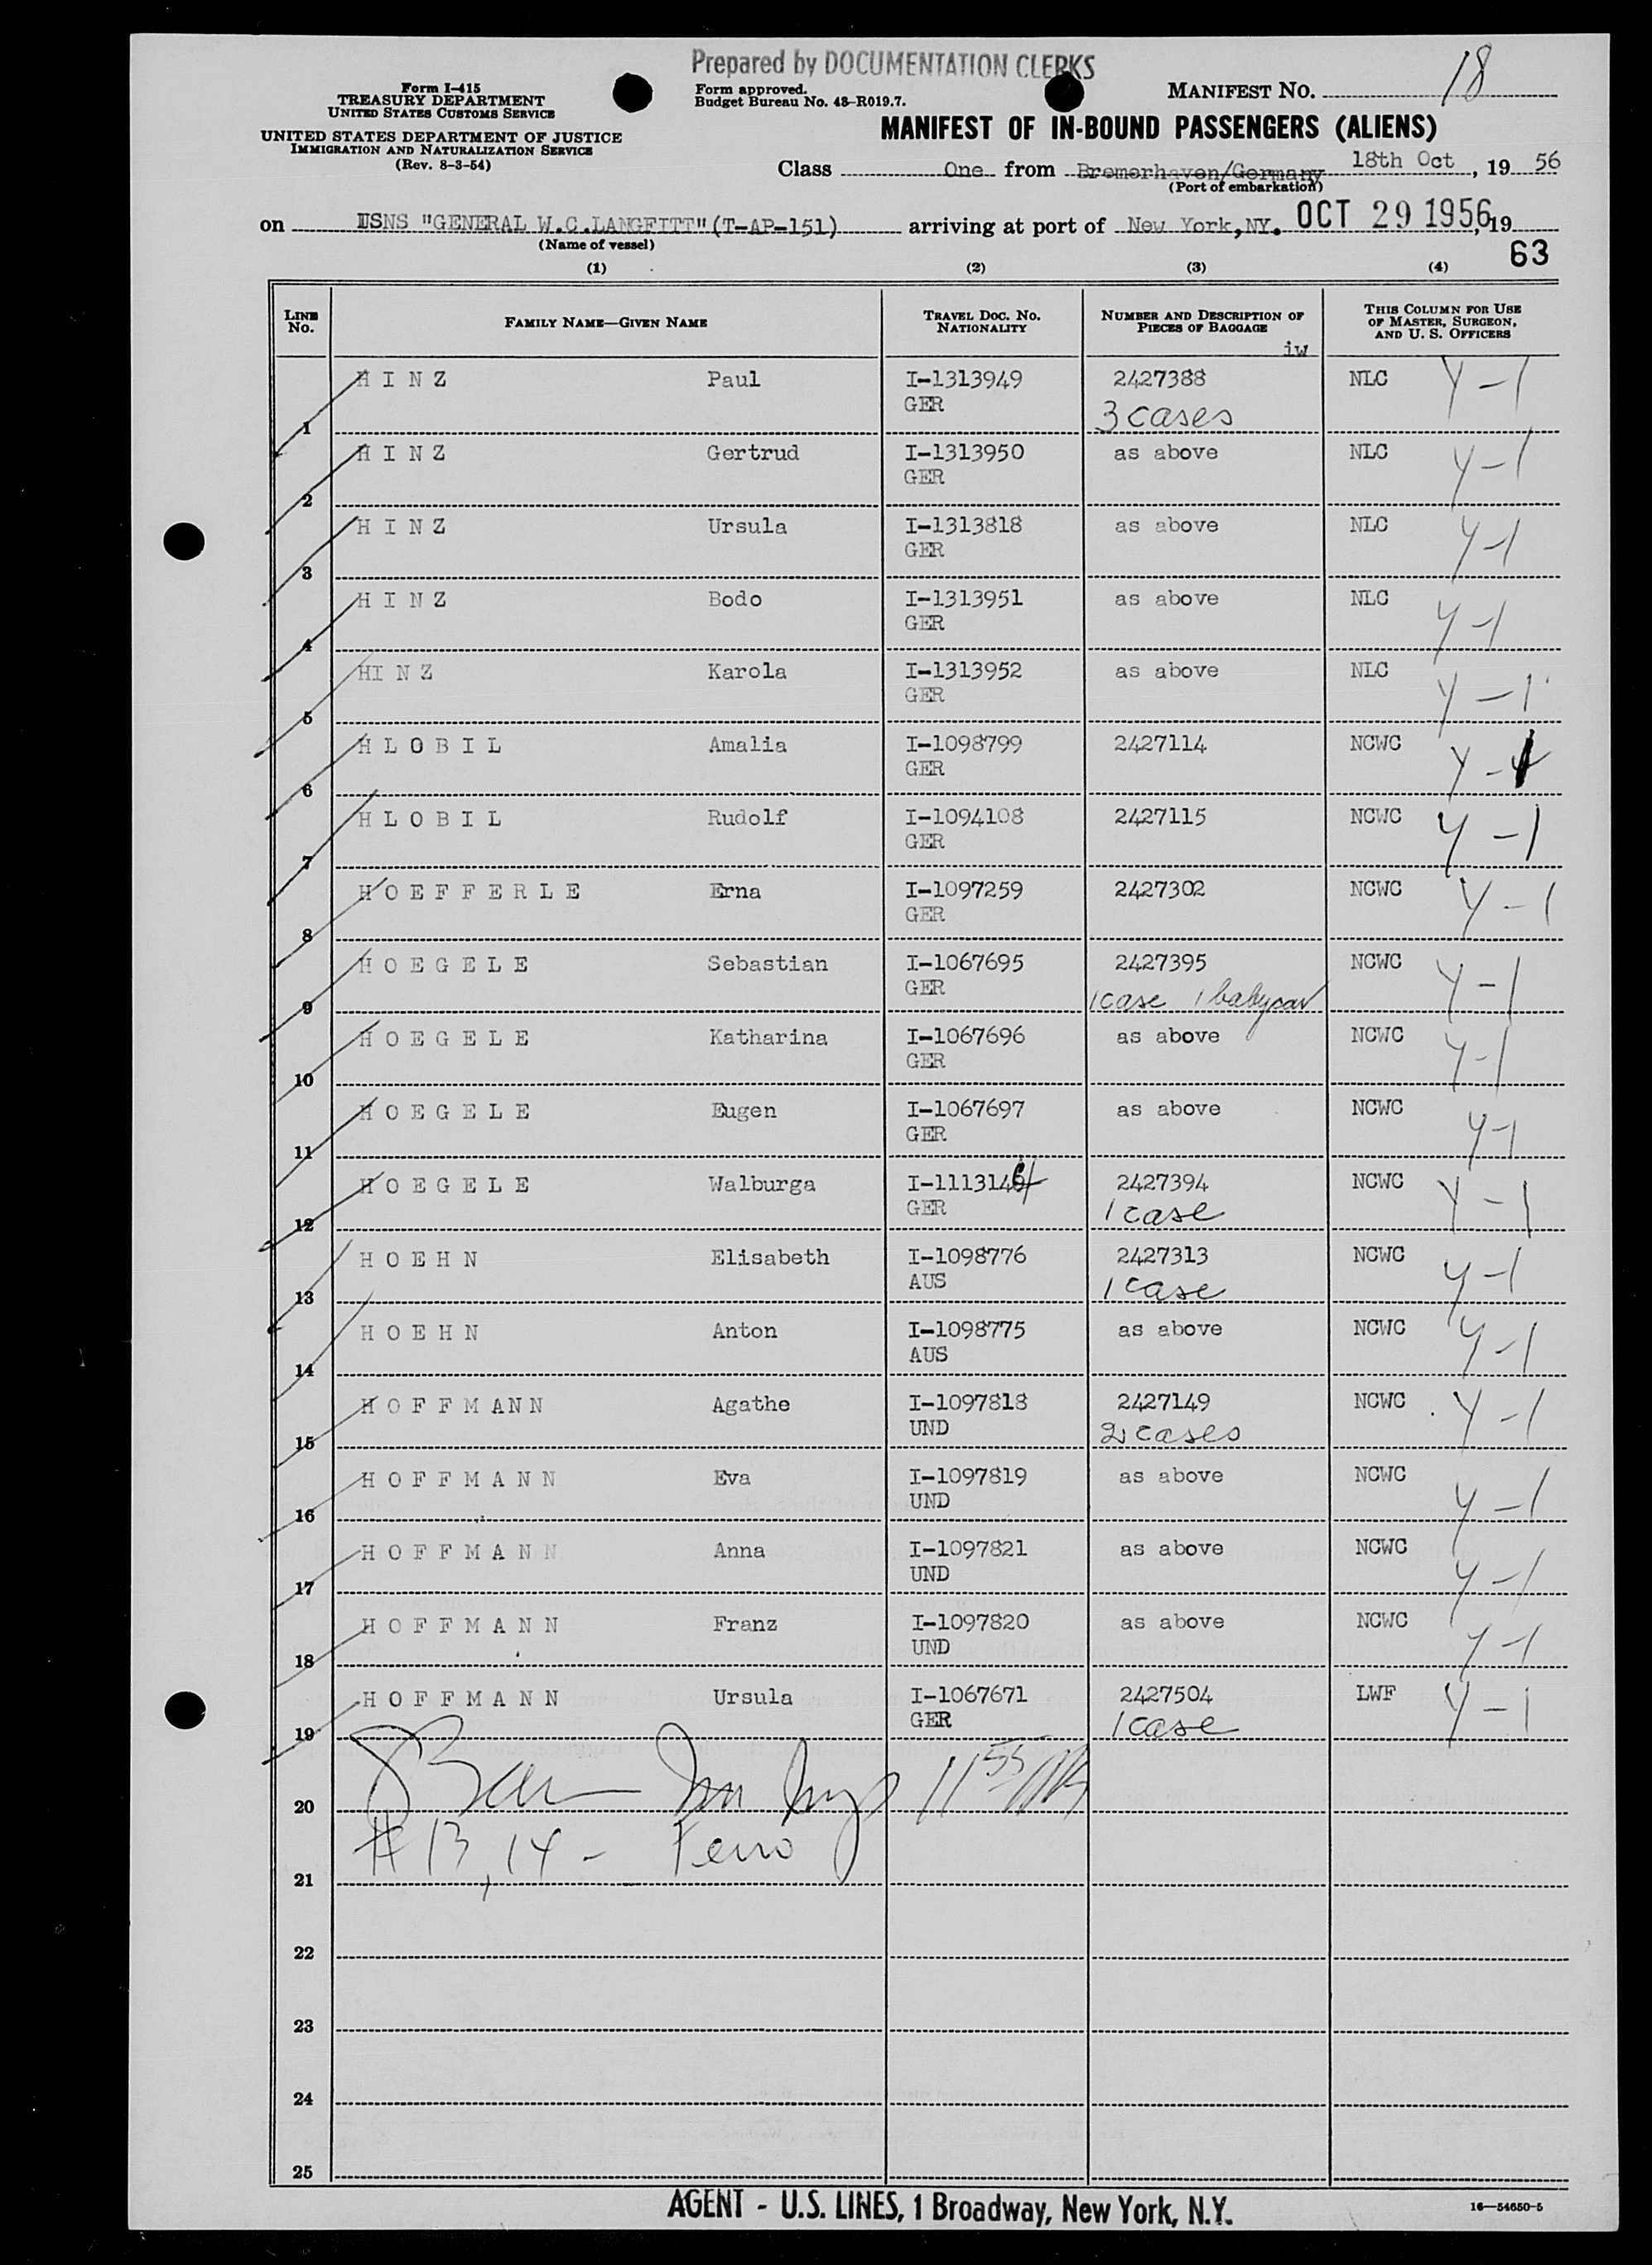 Prepared by DOCUMENTATION CLERKS
Form I-415
TREASURY DEPARTMENT
UNITED STATES CUSTOMS SERVICE
UNITED STATES DEPARTMENT OF JUSTICE
IMMIGRATION AND NATURALIZATION SERVICE
(Rev. 8-3-54)
Form approved.
Budget Bureau No. 43-R019.7.
MANIFEST NO. 18
MANIFEST OF IN-BOUND PASSENGERS (ALIENS)
Class One from Bremerhaven/Germany 18th Oct, 19 56
(Port of embarkation)
on USNS "GENERAL W.C.LANGFITT" (T-AP-151) arriving at port of New York, NY. OCT 29 1956, 19
(Name of vessel)
63
(1) (2) (3) (4)
LINE NO. FAMILY NAME—GIVEN NAME TRAVEL DOC. NO. NATIONALITY NUMBER AND DESCRIPTION OF PIECES OF BAGGAGE THIS COLUMN FOR USE OF MASTER, SURGEON, AND U. S. OFFICERS
iw
1 H I N Z Paul I-1313949 GER 2427388 3 cases NLC Y-1
2 H I N Z Gertrud I-1313950 GER as above NLC Y-1
3 H I N Z Ursula I-1313818 GER as above NLC Y-1
4 H I N Z Bodo I-1313951 GER as above NLC Y-1
5 HI N Z Karola I-1313952 GER as above NLC Y-1
6 H L O B I L Amalia I-1098799 GER 2427114 NCWC Y-1
7 H L O B I L Rudolf I-1094108 GER 2427115 NCWC Y-1
8 H O E F F E R L E Erna I-1097259 GER 2427302 NCWC Y-1
9 H O E G E L E Sebastian I-1067695 GER 2427395 1 case 1 babycar NCWC Y-1
10 H O E G E L E Katharina I-1067696 GER as above NCWC Y-1
11 H O E G E L E Eugen I-1067697 GER as above NCWC Y-1
12 H O E G E L E Walburga I-111314 GER 2427394 1 case NCWC Y-1
13 H O E H N Elisabeth I-1098776 AUS 2427313 1 case NCWC Y-1
14 H O E H N Anton I-1098775 AUS as above NCWC Y-1
15 H O F F M ANN Agathe I-1097818 UND 2427149 2 cases NCWC Y-1
16 H O F F M A N N Eva I-1097819 UND as above NCWC Y-1
17 H O F F M A N N Anna I-1097821 UND as above NCWC Y-1
18 H O F F M A N N Franz I-1097820 UND as above NCWC Y-1
19 H O F F M A N N Ursula I-1067671 GER 2427504 1 case LWF Y-1
20 11 55
21 # 13, 14 -
22
23
24
25
AGENT - U.S. LINES, 1 Broadway, New York, N.Y.
16—54650-5